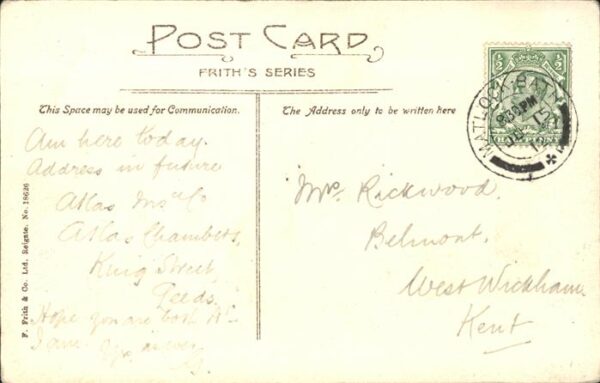 POST CARD
FRITH'S SERIES
This Space may be used for Communication.
The Address only to be written here
Am here today.
Address in future
Atlas Insce Co
Atlas Chambers,
King Street,
Leeds.
Hope you are both
I am
Mrs. Rickwood,
Belmont,
West Wickham
Kent
F. Frith & Co. Ltd. Reigate. No. 18626
MATLOCK BATH
8.30 PM
12